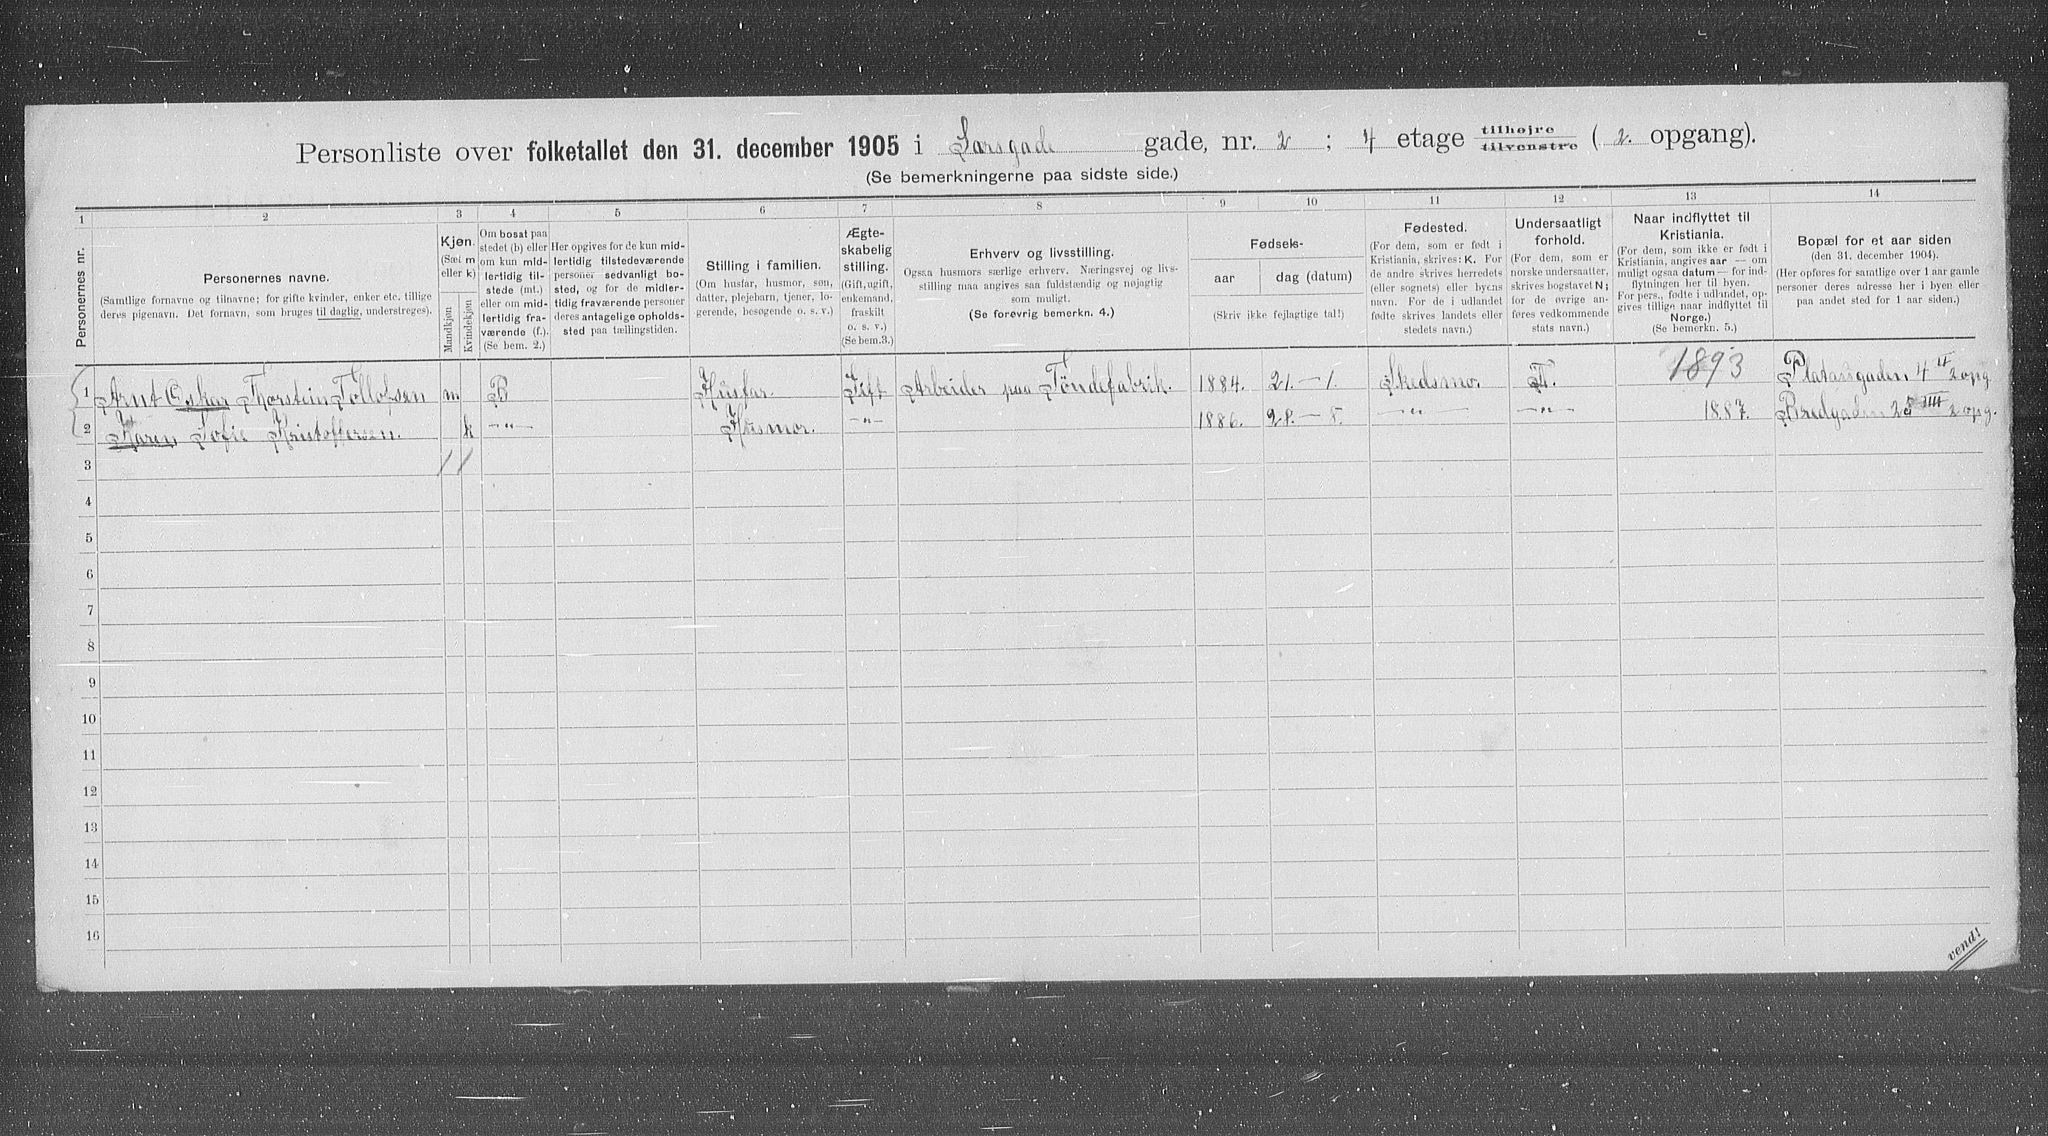 Personliste over folketallet den 31. december 1905 i Sarsgade gade, nr. 2 ; 4 etage tilhøjre tilvenstre ( 2. opgang).
(Se bemerkningerne paa sidste side.)
1 2 3 4 5 6 7 8 9 10 11 12 13 14
Personernes nr.
Personernes navne.
(Samtlige fornavne og tilnavne; for gifte kvinder, enker etc. tillige
deres pigenavn. Det fornavn, som bruges til daglig, understreges).
Kjøn.
(Sæt m
eller k)
Mandkjøn
Kvindekjøn
Om bosat paa
stedet (b) eller
om kun mid-
lertidig til-
stede (mt.)
eller om mid-
lertidig fra-
værende (f.).
(Se bem. 2.)
Her opgives for de kun mid-
lertidig tilstedeværende
personer sedvanligt bo-
sted, og for de midler-
tidig fraværende personer
deres antagelige opholds-
sted paa tællingstiden.
Stilling i familien.
(Om husfar, husmor, søn,
datter, plejebarn, tjener, lo-
gerende, besøgende o. s. v.)
Ægte-
skabelig
stilling.
(Gift, ugift,
enkemand,
fraskilt
o. s. v.)
(Se bem.3.)
Erhverv og livsstilling.
Ogsaa husmors særlige erhverv. Næringsvej og livs-
stilling maa angives saa fuldstændig og nøjagtig
som muligt.
(Se forøvrig bemerkn. 4.)
Fødsels-
aar
dag (datum)
(Skriv ikke fejlagtige tal!)
Fødested.
(For dem, som er født i
Kristiania, skrives: K. For
de andre skrives herredets
(eller sognets) eller byens
navn. For de i udlandet
fødte skrives landets eller
stedets navn.)
Undersaatligt
forhold.
(For dem, som er
norske undersaatter,
skrives bogstavet N;
for de øvrige an-
føres vedkommende
stats navn.)
Naar indflyttet til
Kristiania.
(For dem, som ikke er født i
Kristiania, angives aar — om
muligt ogsaa datum — for ind-
flytningen her til byen.
For pers., fødte i udlandet, op-
gives tillige naar indflyttet til
Norge.)
(Se bemerkn. 5.)
Bopæl for et aar siden
(den 31. december 1904).
(Her opføres for samtlige over 1 aar gamle
personer deres adresse her i byen eller
paa andet sted for 1 aar siden.)
1 Arnt Oskar Thorstein Tollofsen m B Husfar Gift Arbeider paa Tøndefabrik. 1884. 21.-1. Skedsmo. 1893 Platousgaden 4 II 2 opg
2 Karen Sofie Kristoffersen. k -"- Husmor. -"- 1886. 28.-8. -"- -"- 1887. Bredgaden 2 IIII 2 opg.
3
4
5
6
7
8
9
10
11
12
13
14
15
16
vend!